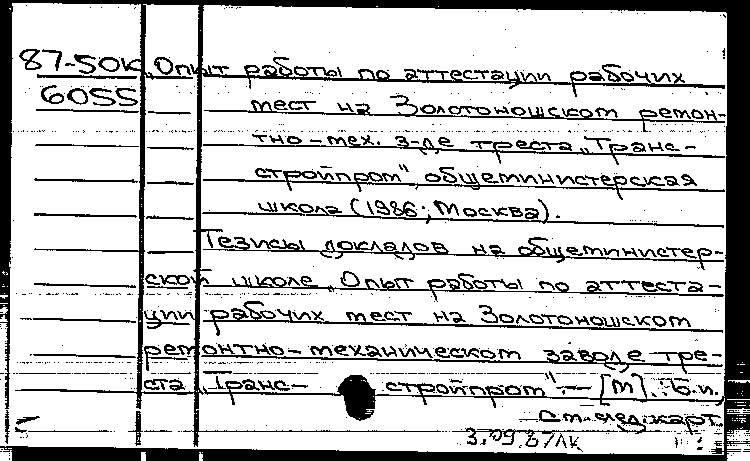 87-50К „Опыт работы по аттестации рабочих
6055 мест на Золотоношском ремон-
тно-мех. з-де треста „Транс-
стройпром", общеминистерская
школа (1986; Москва).
Тезисы докладов на общеминистер-
ской школе „Опыт работы по аттеста-
ции рабочих мест на Золотоношском
ремонтно-механическом заводе тре-
ста „Транс- стройпром". – [М]. : Б.и.,
См. след. карт.
3.09.87ЛК